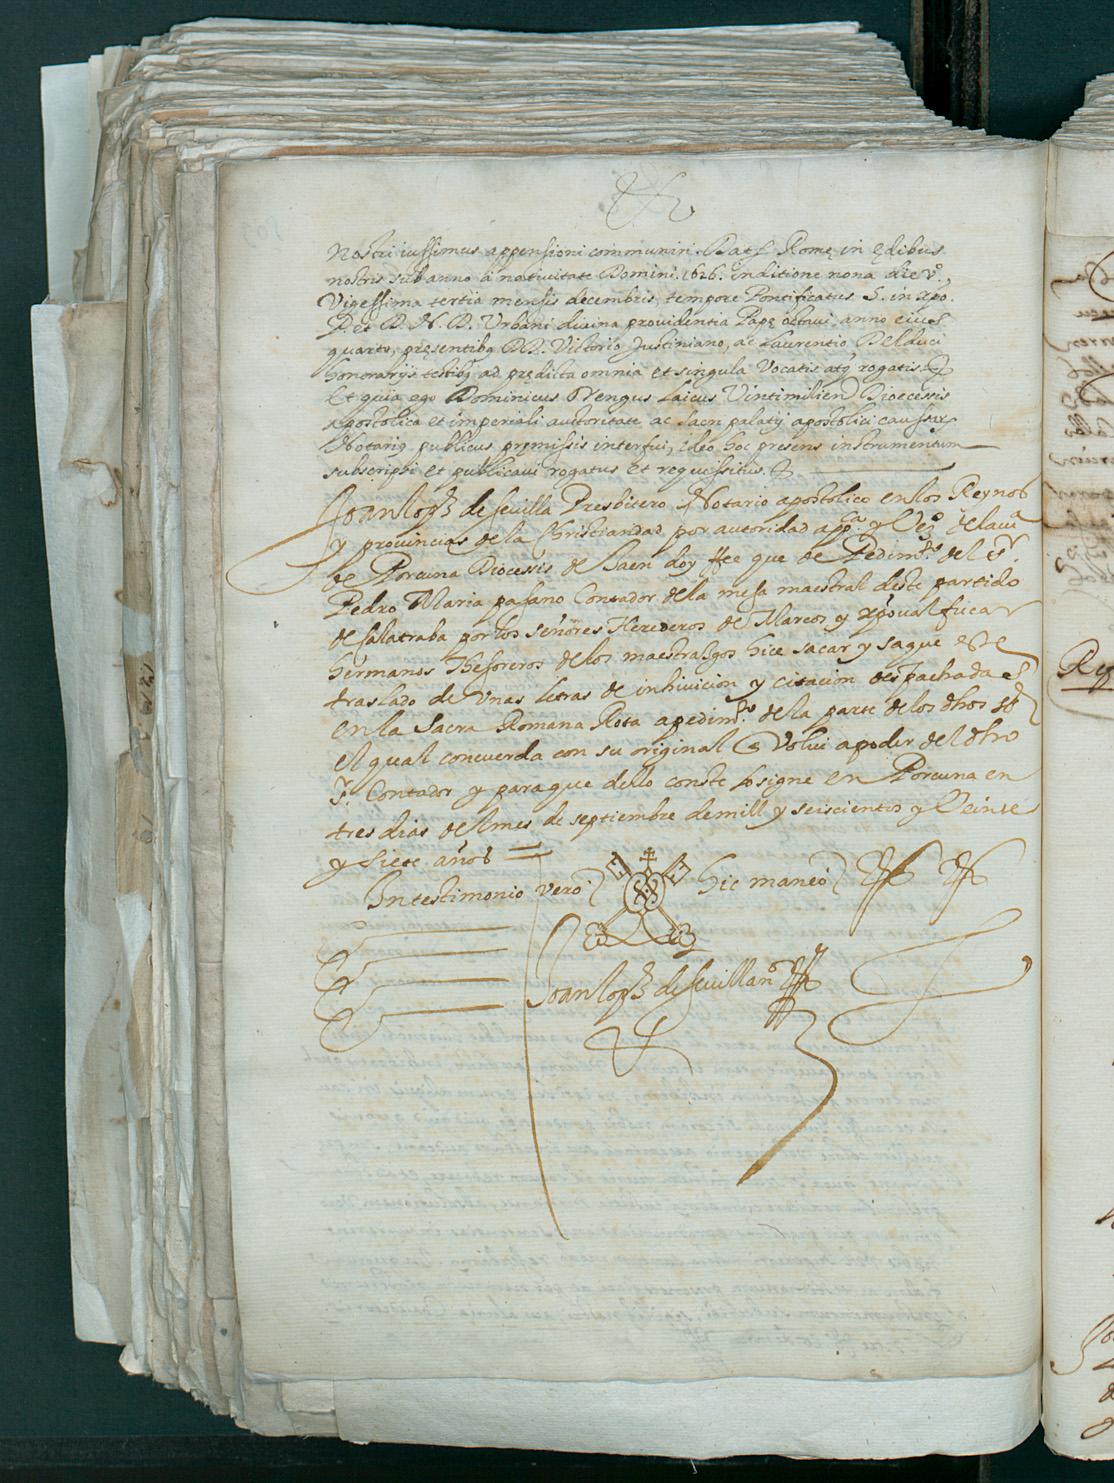 nostri iussimus appensioni communiri. Dat Romę in ędibus
nostris sub anno a natiuitate Domini. 1626. inditione nona die vº,
Vigessima tertia mensis decembris, tempore Pontificatus S. in xpo.
P. et D. N. D. Urbani diuina prouidentia Papę octaui anno eius
quarto, pręsentibq DD. Victorio Justiniano, ac Laurentio Belduci
honorarijs testibq ad prędicta omnia et singula Vocatis atq rogatis.
Et quia ego Dominicus Vengus laicus Vintimilien Dioecessis
apostolica et imperiali auctoritate ac sacri palatij apostolici caussarum
Notariq publicus pręmissis interfui, ideo hoc presens instrumentum
subscripsi et publicaui rogatus et requissitus.
Joan lopz de seuilla Presbitero Notario apostolico en los Reynos
y prouincias de la Christiandad por autoridad appca y Vezº de la uiª
de Porcuna Diocessis de Jaen doy ffee que de Pedimtº del sr
Pedro Maria pasano Contador de la mesa maestral deste partido
de calatraba por los señores Herederos de Marcos y xpoual fucar
hermanos Thesoreros de los maestrasgos hice sacar y saque este
traslado de Vnas letras de inhiuicion y citacion despachadas
en la Sacra Romana Rota a pedimtº de la parte de los dhos ss
el qual concuerda con su original q Volui a poder del dho
sr Contador y para que dello conste lo signe en Porcuna en
tres dias del mes de septiembre de mill y seiscientos y Veinte
y siete años
In testimonio vero hic maneo
Joan lopz de seuilla nº